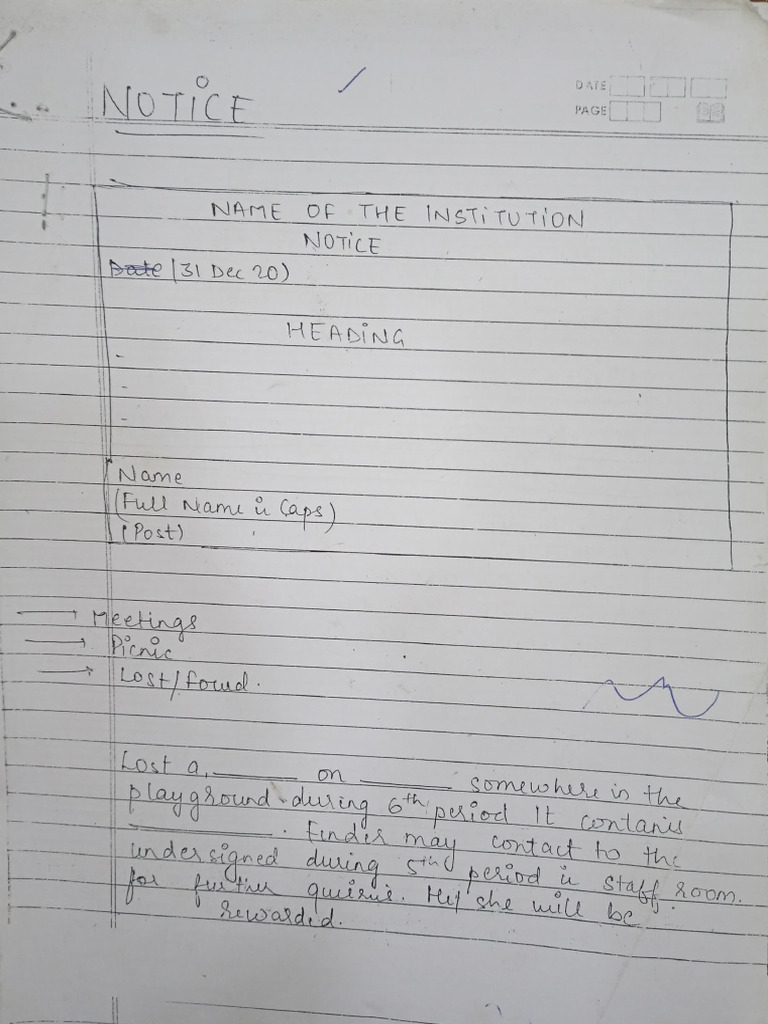 NOTICE
DATE
PAGE
NAME OF THE INSTITUTION
NOTICE
Date (31 Dec 20)
HEADING
-
-
-
Name
(Full Name in Caps)
(Post)
→ Meetings
→ Picnic
→ Lost/found.
Lost a, ______ on ______ somewhere in the
playground during 6th period It contanis
__________. Finder may contact to the
undersigned during 5th period in staff room.
for further queirie. He/she will be
rewarded.